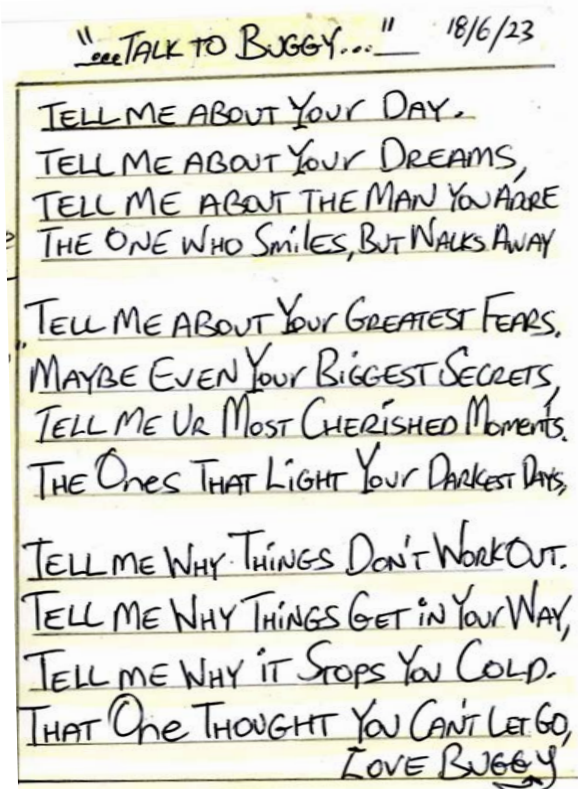 "...TALK TO BUGGY..." 18/6/23
TELL ME ABOUT YOUR DAY.
TELL ME ABOUT YOUR DREAMS,
TELL ME ABOUT THE MAN YOU ADORE
THE ONE WHO SMILES, BUT WALKS AWAY
TELL ME ABOUT YOUR GREATEST FEARS.
MAYBE EVEN YOUR BIGGEST SECRETS,
TELL ME UR MOST CHERISHED MOMENTS.
THE ONES THAT LIGHT YOUR DARKEST DAYS,
TELL ME WHY THINGS DON'T WORK OUT.
TELL ME WHY THINGS GET IN YOUR WAY,
TELL ME WHY IT STOPS YOU COLD.
THAT ONE THOUGHT YOU CAN'T LET GO,
LOVE BUGGY